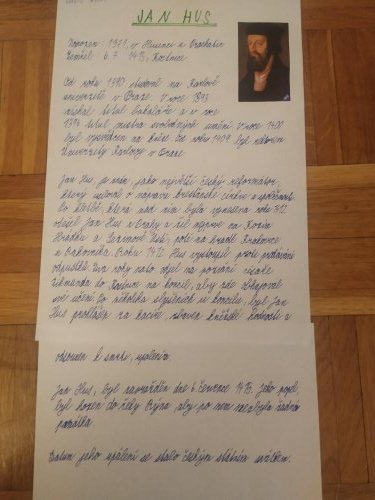 JAN HUS
Narozen: 1371, v Husinec u Prachatic
Zemřel: 6. 7. 1415, Kostnice
Od roku 1390 studoval na Karlově
univerzitě v Praze. V roce 1393
získal titul bakaláře a v roce
1396 titul mistra svobodných umění. V roce 1400
byl vysvěcen na kněze. Od roku 1409 byl rektorem
Univerzity Karlovy v Praze.
Jan Hus je znám, jako největší český reformátor,
který usiloval o nápravu křesťanské církve a společnosti.
Do klatbě, která nad ním byla vynesena roku 1412
odešel Jan Hus z Prahy a žil nejprve na Kozím
Hrádku a Sezimově Ústí, poté na hradě Krakovce
u Rakovníka. Roku 1412 Hus vystoupil proti prodávání
odpustků. Dva roky nato odjel na pozvání císaře
Zikmunda do Kostnice na koncil, aby zde obhajoval
své učení. Po několika slyšeních u koncilu, byl Jan
Hus prohlášen za kacíře, zbaven kněžské hodnosti a
odsouzen k smrti, upálením.
Jan Hus, byl zavražděn dne 6 července 1415. Jeho popel
byl hozen do řeky Rýna aby po něm nezbyla žádná
památka.
Datum jeho upálení se stalo českým státním svátkem.